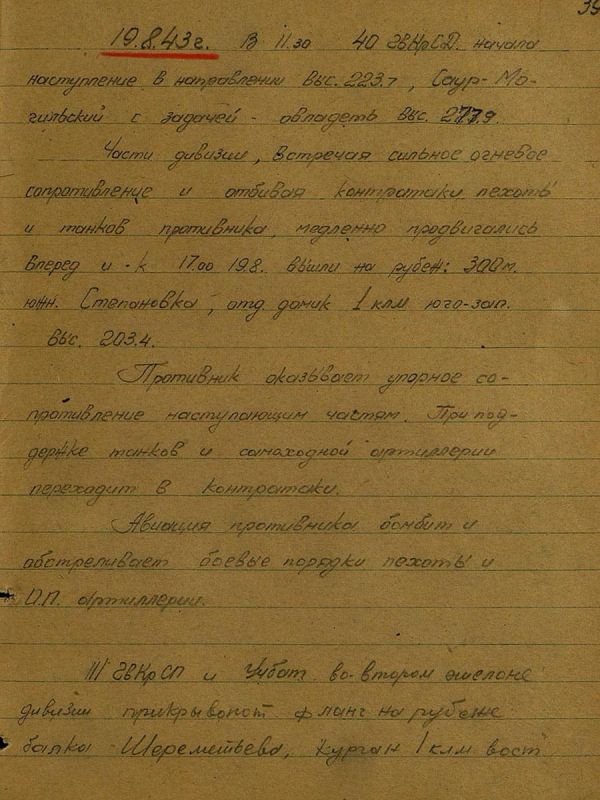 39
19.8.43 г. В 11.30 40 ГвКрСД начала
наступление в направлении выс. 223.7, Саур-Мо-
гильский с задачей - овладеть выс. 277.9.
Части дивизии, встречая сильное огневое
сопротивление и отбивая контратаки пехоты
и танков противника, медленно продвигались
вперед и - к 17.00 19.8. вышли на рубеж: 300 м.
южн. Степановка, отд. домик 1 клм юго-зап.
выс. 203.4.
Противник оказывает упорное со-
противление наступающим частям. При под-
держке танков и самоходной артиллерии
переходит в контратаки.
Авиация противника бомбит и
обстреливает боевые порядки пехоты и
О.П. артиллерии.
111 ГвКрСП и Учбат. во-втором эшелоне
дивизии прикрывают фланг на рубеже
балка Шереметьева, курган 1 клм вост